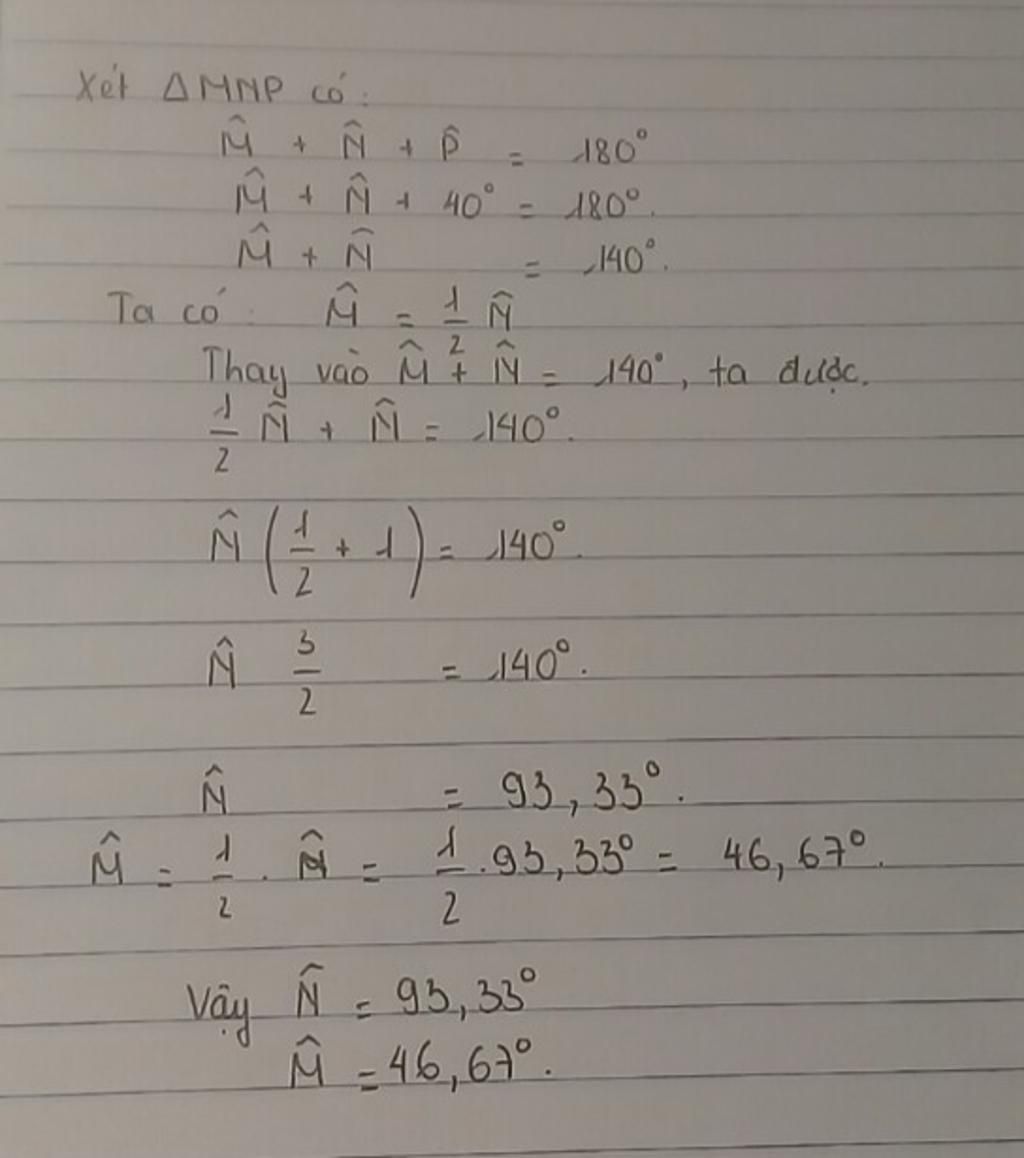 Xét ΔMNP có:
M̂ + N̂ + P̂ = 180°
M̂ + N̂ + 40° = 180°.
M̂ + N̂ = 140°.
Ta có: M̂ = 1/2 N̂
Thay vào M̂ + N̂ = 140°, ta được.
1/2 N̂ + N̂ = 140°.
N̂ (1/2 + 1) = 140°.
N̂ 3/2 = 140°.
N̂ = 93,33°.
M̂ = 1/2 . N̂ = 1/2 . 93,33° = 46,67°.
Vậy N̂ = 93,33°
M̂ = 46,67°.